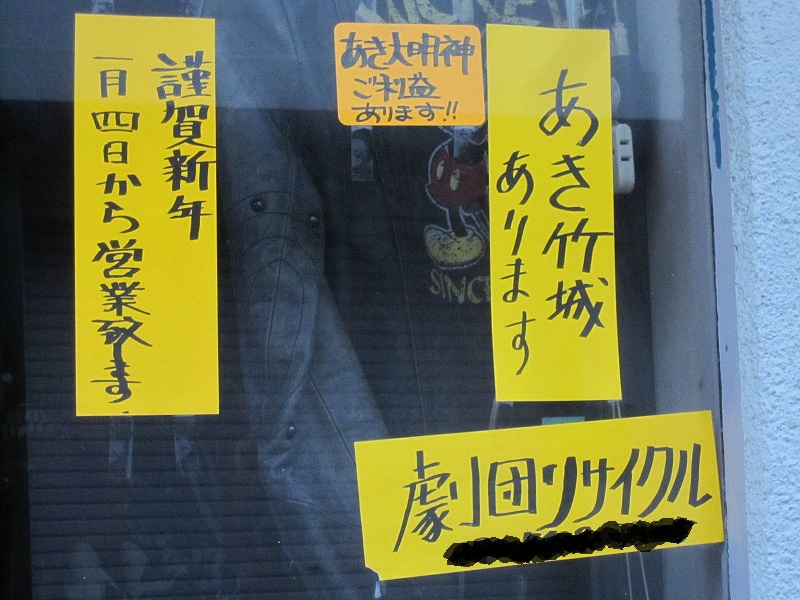 謹賀新年
一月四日から営業致します
あき大明神
ご利益
あります!!
あき竹城
あります
劇団リサイクル
SINCE